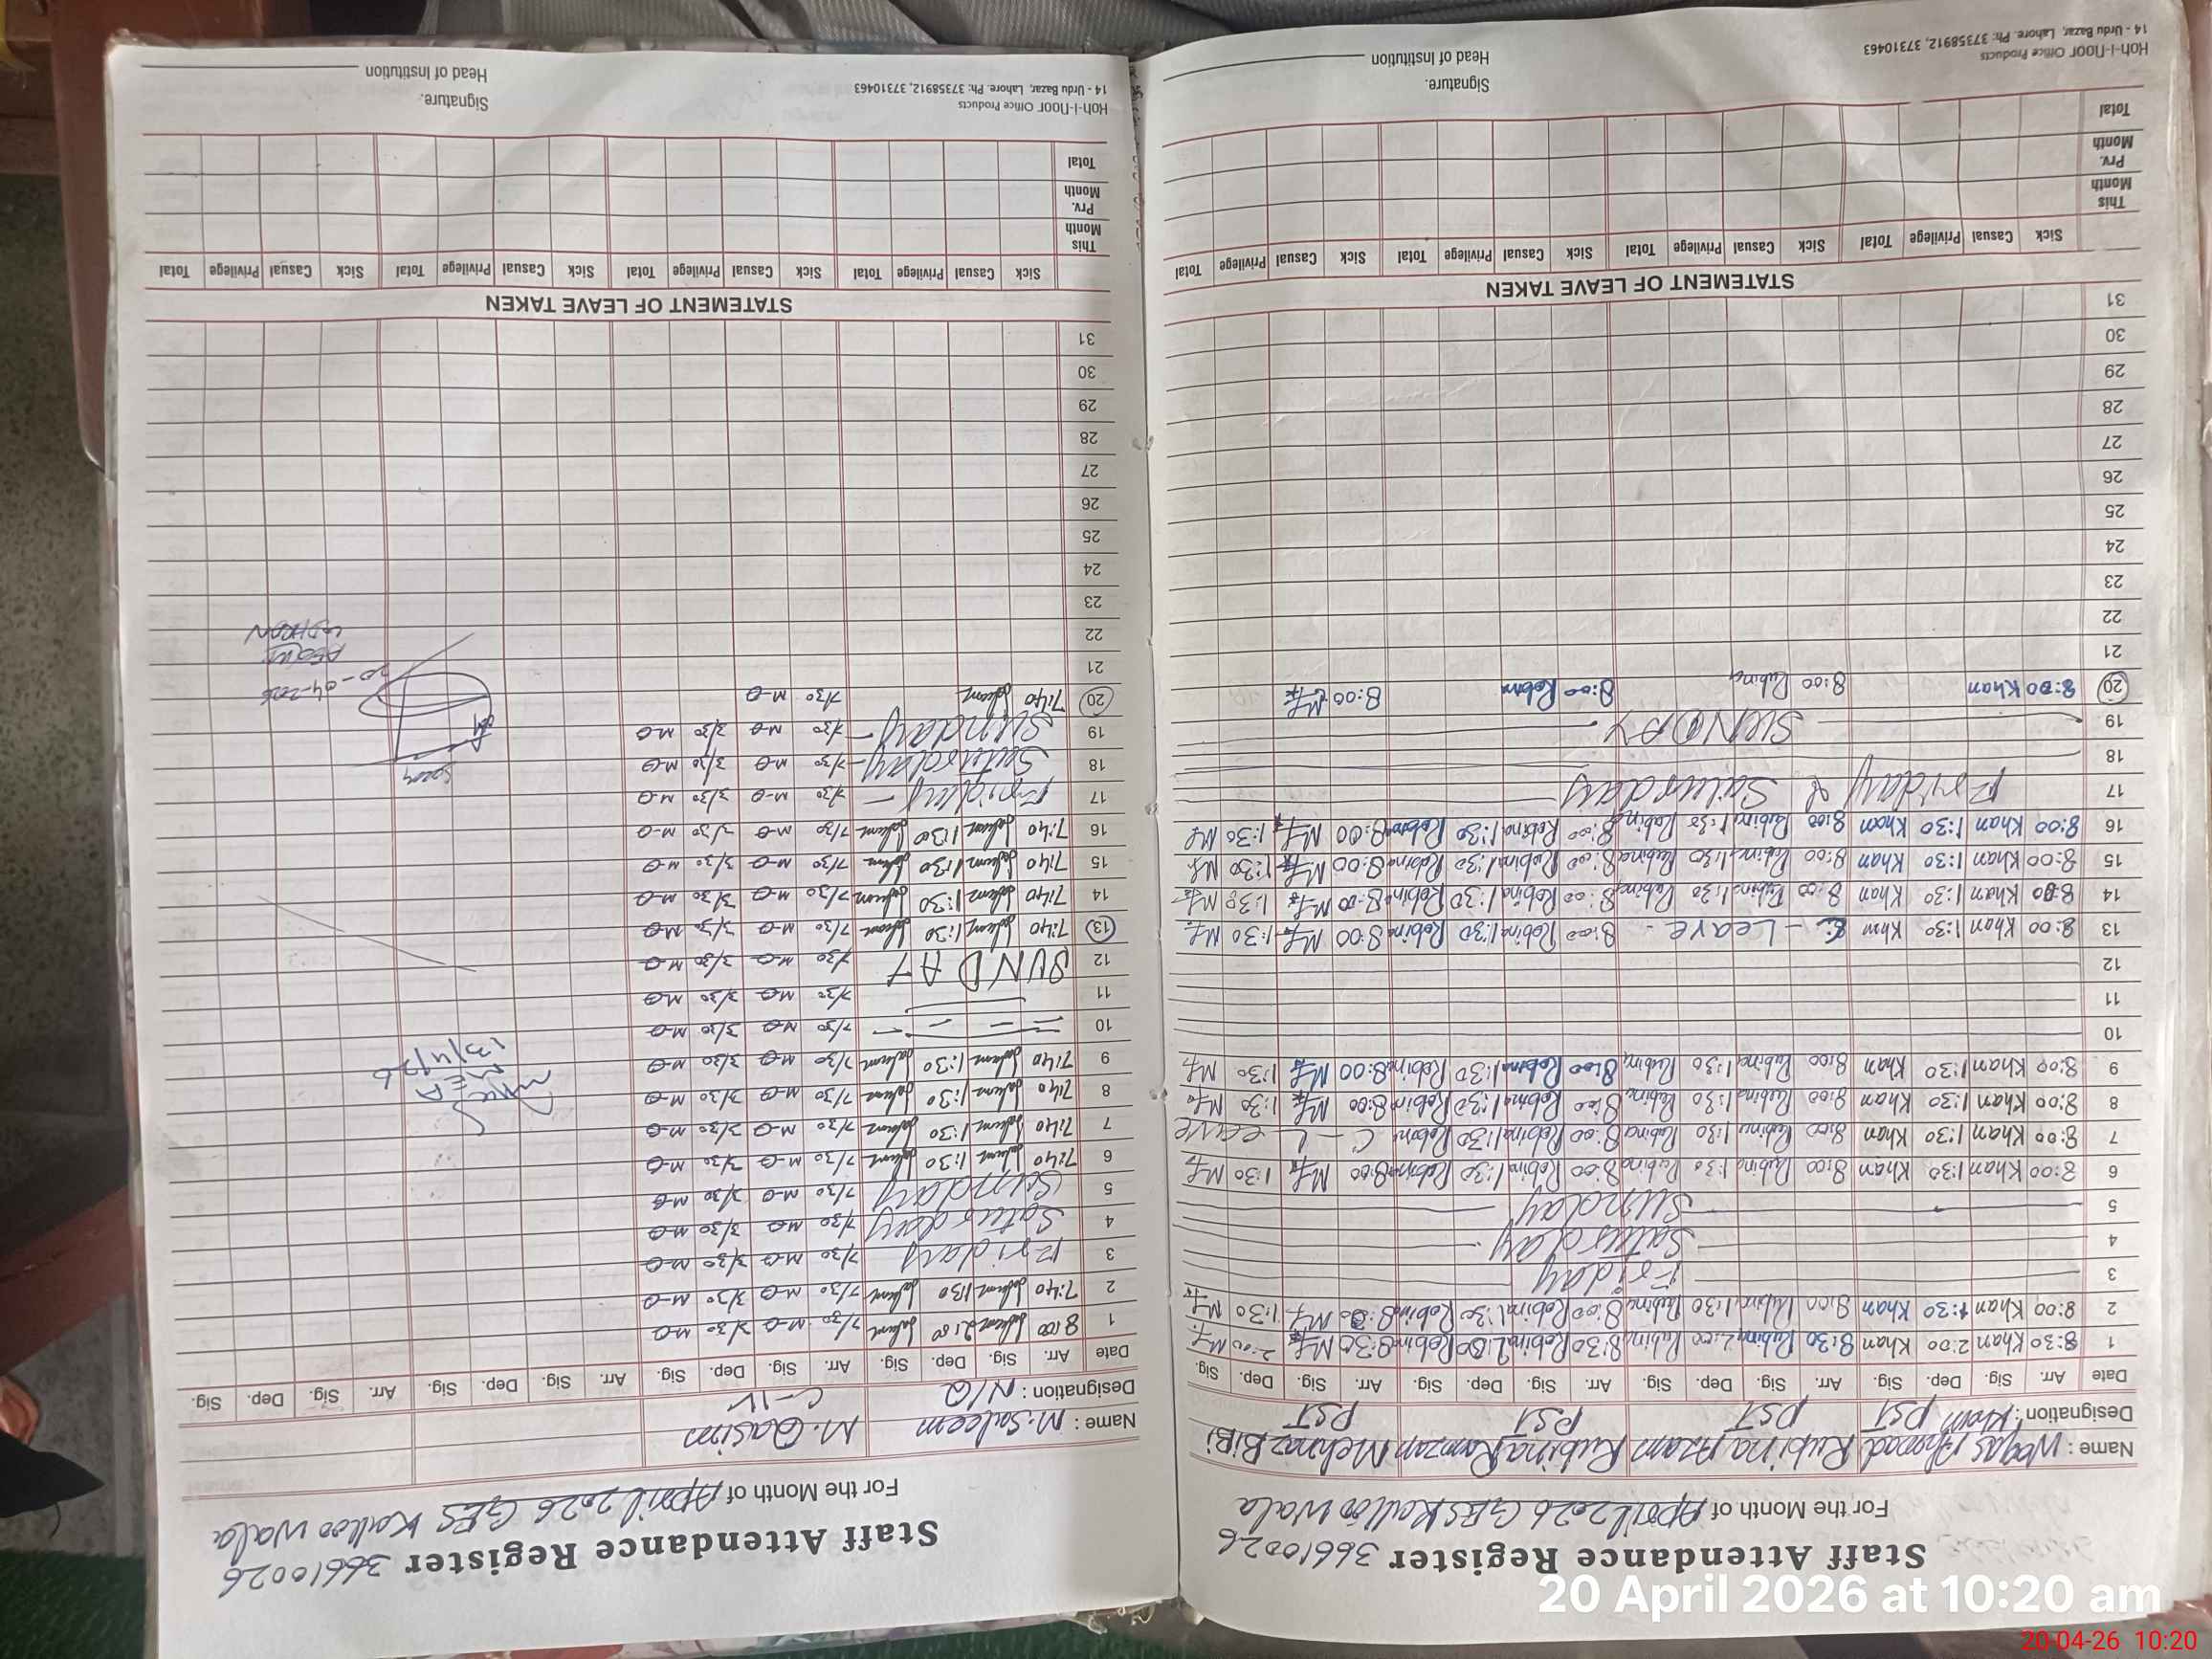 Staff Attendance Register 36610026
For the Month of April 2026 GES Kalloo Wala
Name : Waqas Ahmad Khan Rubina Azam Rubina Ramzan Mehnaz BiBi
Designation : PST PST PST PST
Date Arr. Sig. Dep. Sig. Arr. Sig. Dep. Sig. Arr. Sig. Dep. Sig. Arr. Sig. Dep. Sig
1 8:30 Khan 2:00 Khan 8:30 Rubina 2:00 Rubina 8:30 Robina 2:00 Robina 8:30 2:00
2 8:00 Khan 1:30 Khan 8:00 Rubina 1:30 Rubina 8:00 Robina 1:30 Robina 8:00 1:30
3 Friday
4 Saturday
5 Sunday
6 8:00 Khan 1:30 Khan 8:00 Rubina 1:30 Rubina 8:00 Robina 1:30 Robina 8:00 1:30
7 8:00 Khan 1:30 Khan 8:00 Rubina 1:30 Rubina 8:00 Robina 1:30 Robina C - Leave
8 8:00 Khan 1:30 Khan 8:00 Rubina 1:30 Rubina 8:00 Robina 1:30 Robina 8:00 1:30
9 8:00 Khan 1:30 Khan 8:00 Rubina 1:30 Rubina 8:00 Robina 1:30 Robina 8:00 1:30
10
11
12
13 8:00 Khan 1:30 Khan C - Leave - 8:00 Robina 1:30 Robina 8:00 1:30
14 8:00 Khan 1:30 Khan 8:00 Rubina 1:30 Rubina 8:00 Robina 1:30 Robina 8:00 1:30
15 8:00 Khan 1:30 Khan 8:00 Rubina 1:30 Rubina 8:00 Robina 1:30 Robina 8:00 1:30
16 8:00 Khan 1:30 Khan 8:00 Rubina 1:30 Rubina 8:00 Robina 1:30 Robina 8:00 1:30
17 Friday & Saturday
18
19 SUNDAY
20 8:00 Khan 8:00 Rubina 8:00 Robina 8:00
21
22
23
24
25
26
27
28
29
30
31
STATEMENT OF LEAVE TAKEN
Sick Casual Privilege Total Sick Casual Privilege Total Sick Casual Privilege Total Sick Casual Privilege Total
This Month
Prv. Month
Total
Signature.
Head of Institution
Koh-i-noor Office Products
14 - Urdu Bazar, Lahore. Ph: 37358912, 37310463
Staff Attendance Register 36610026
For the Month of April 2026 GES Kalloo Wala
Name : M. Saleem M. Qasim
Designation : N/Q C-IV
Date Arr. Sig. Dep. Sig. Arr. Sig. Dep. Sig. Arr. Sig. Dep. Sig. Arr. Sig. Dep. Sig.
1 8:00 Saleem 2:00 Saleem 7/30 M-Q 3/30 M-Q
2 7:40 Saleem 1:30 Saleem 7/30 M-Q 3/30 M-Q
3 Friday 7/30 M-Q 3/30 M-Q
4 Saturday 7/30 M-Q 3/30 M-Q
5 Sunday 7/30 M-Q 3/30 M-Q
6 7:40 Saleem 1:30 Saleem 7/30 M-Q 3/30 M-Q
7 7:40 Saleem 1:30 Saleem 7/30 M-Q 3/30 M-Q
8 7:40 Saleem 1:30 Saleem 7/30 M-Q 3/30 M-Q
9 7:40 Saleem 1:30 Saleem 7/30 M-Q 3/30 M-Q
10 7/30 M-Q 3/30 M-Q
11 7/30 M-Q 3/30 M-Q
12 SUNDAY 7/30 M-Q 3/30 M-Q
13 7:40 Saleem 1:30 Saleem 7/30 M-Q 3/30 M-Q
14 7:40 Saleem 1:30 Saleem 7/30 M-Q 3/30 M-Q
15 7:40 Saleem 1:30 Saleem 7/30 M-Q 3/30 M-Q
16 7:40 Saleem 1:30 Saleem 7/30 M-Q 3/30 M-Q
17 Friday 7/30 M-Q 3/30 M-Q
18 Saturday 7/30 M-Q 3/30 M-Q
19 Sunday 7/30 M-Q 3/30 M-Q
20 7:40 Saleem 7/30 M-Q
21
22
23
24
25
26
27
28
29
30
31
MEA
13/4/26
20-04-2026
STATEMENT OF LEAVE TAKEN
Sick Casual Privilege Total Sick Casual Privilege Total Sick Casual Privilege Total Sick Casual Privilege Total
This Month
Prv. Month
Total
Signature.
Head of Institution
Koh-i-noor Office Products
14 - Urdu Bazar, Lahore. Ph: 37358912, 37310463
20 April 2026 at 10:20 am
20-04-26 10:20